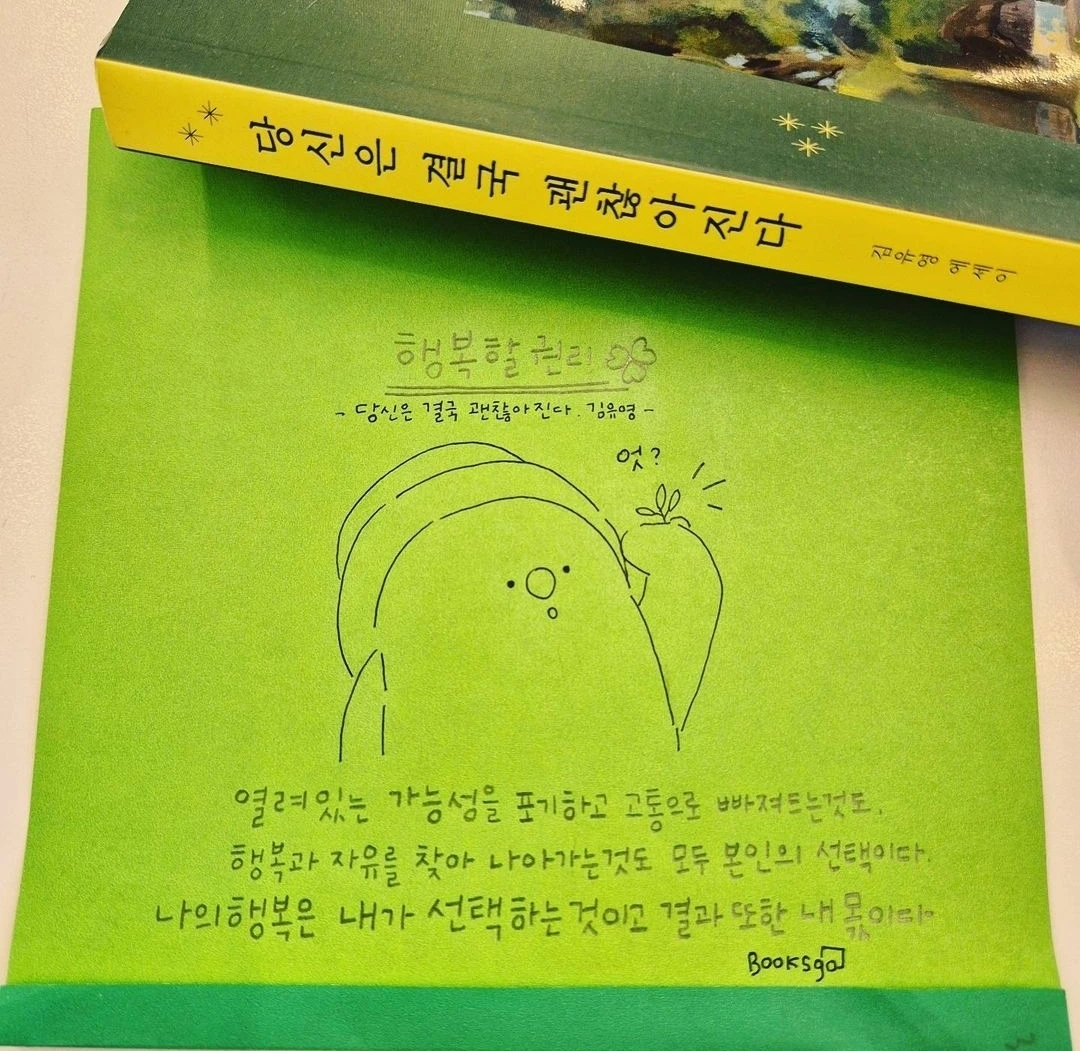 당신은 결국 괜찮아진다
김유영 에세이
행복할 권리
- 당신은 결국 괜찮아진다. 김유영 -
엇?
열려있는 가능성을 포기하고 고통으로 빠져드는것도,
행복과 자유를 찾아 나아가는것도 모두 본인의 선택이다.
나의행복은 내가 선택하는것이고 결과 또한 내 몫이다-
Booksgo